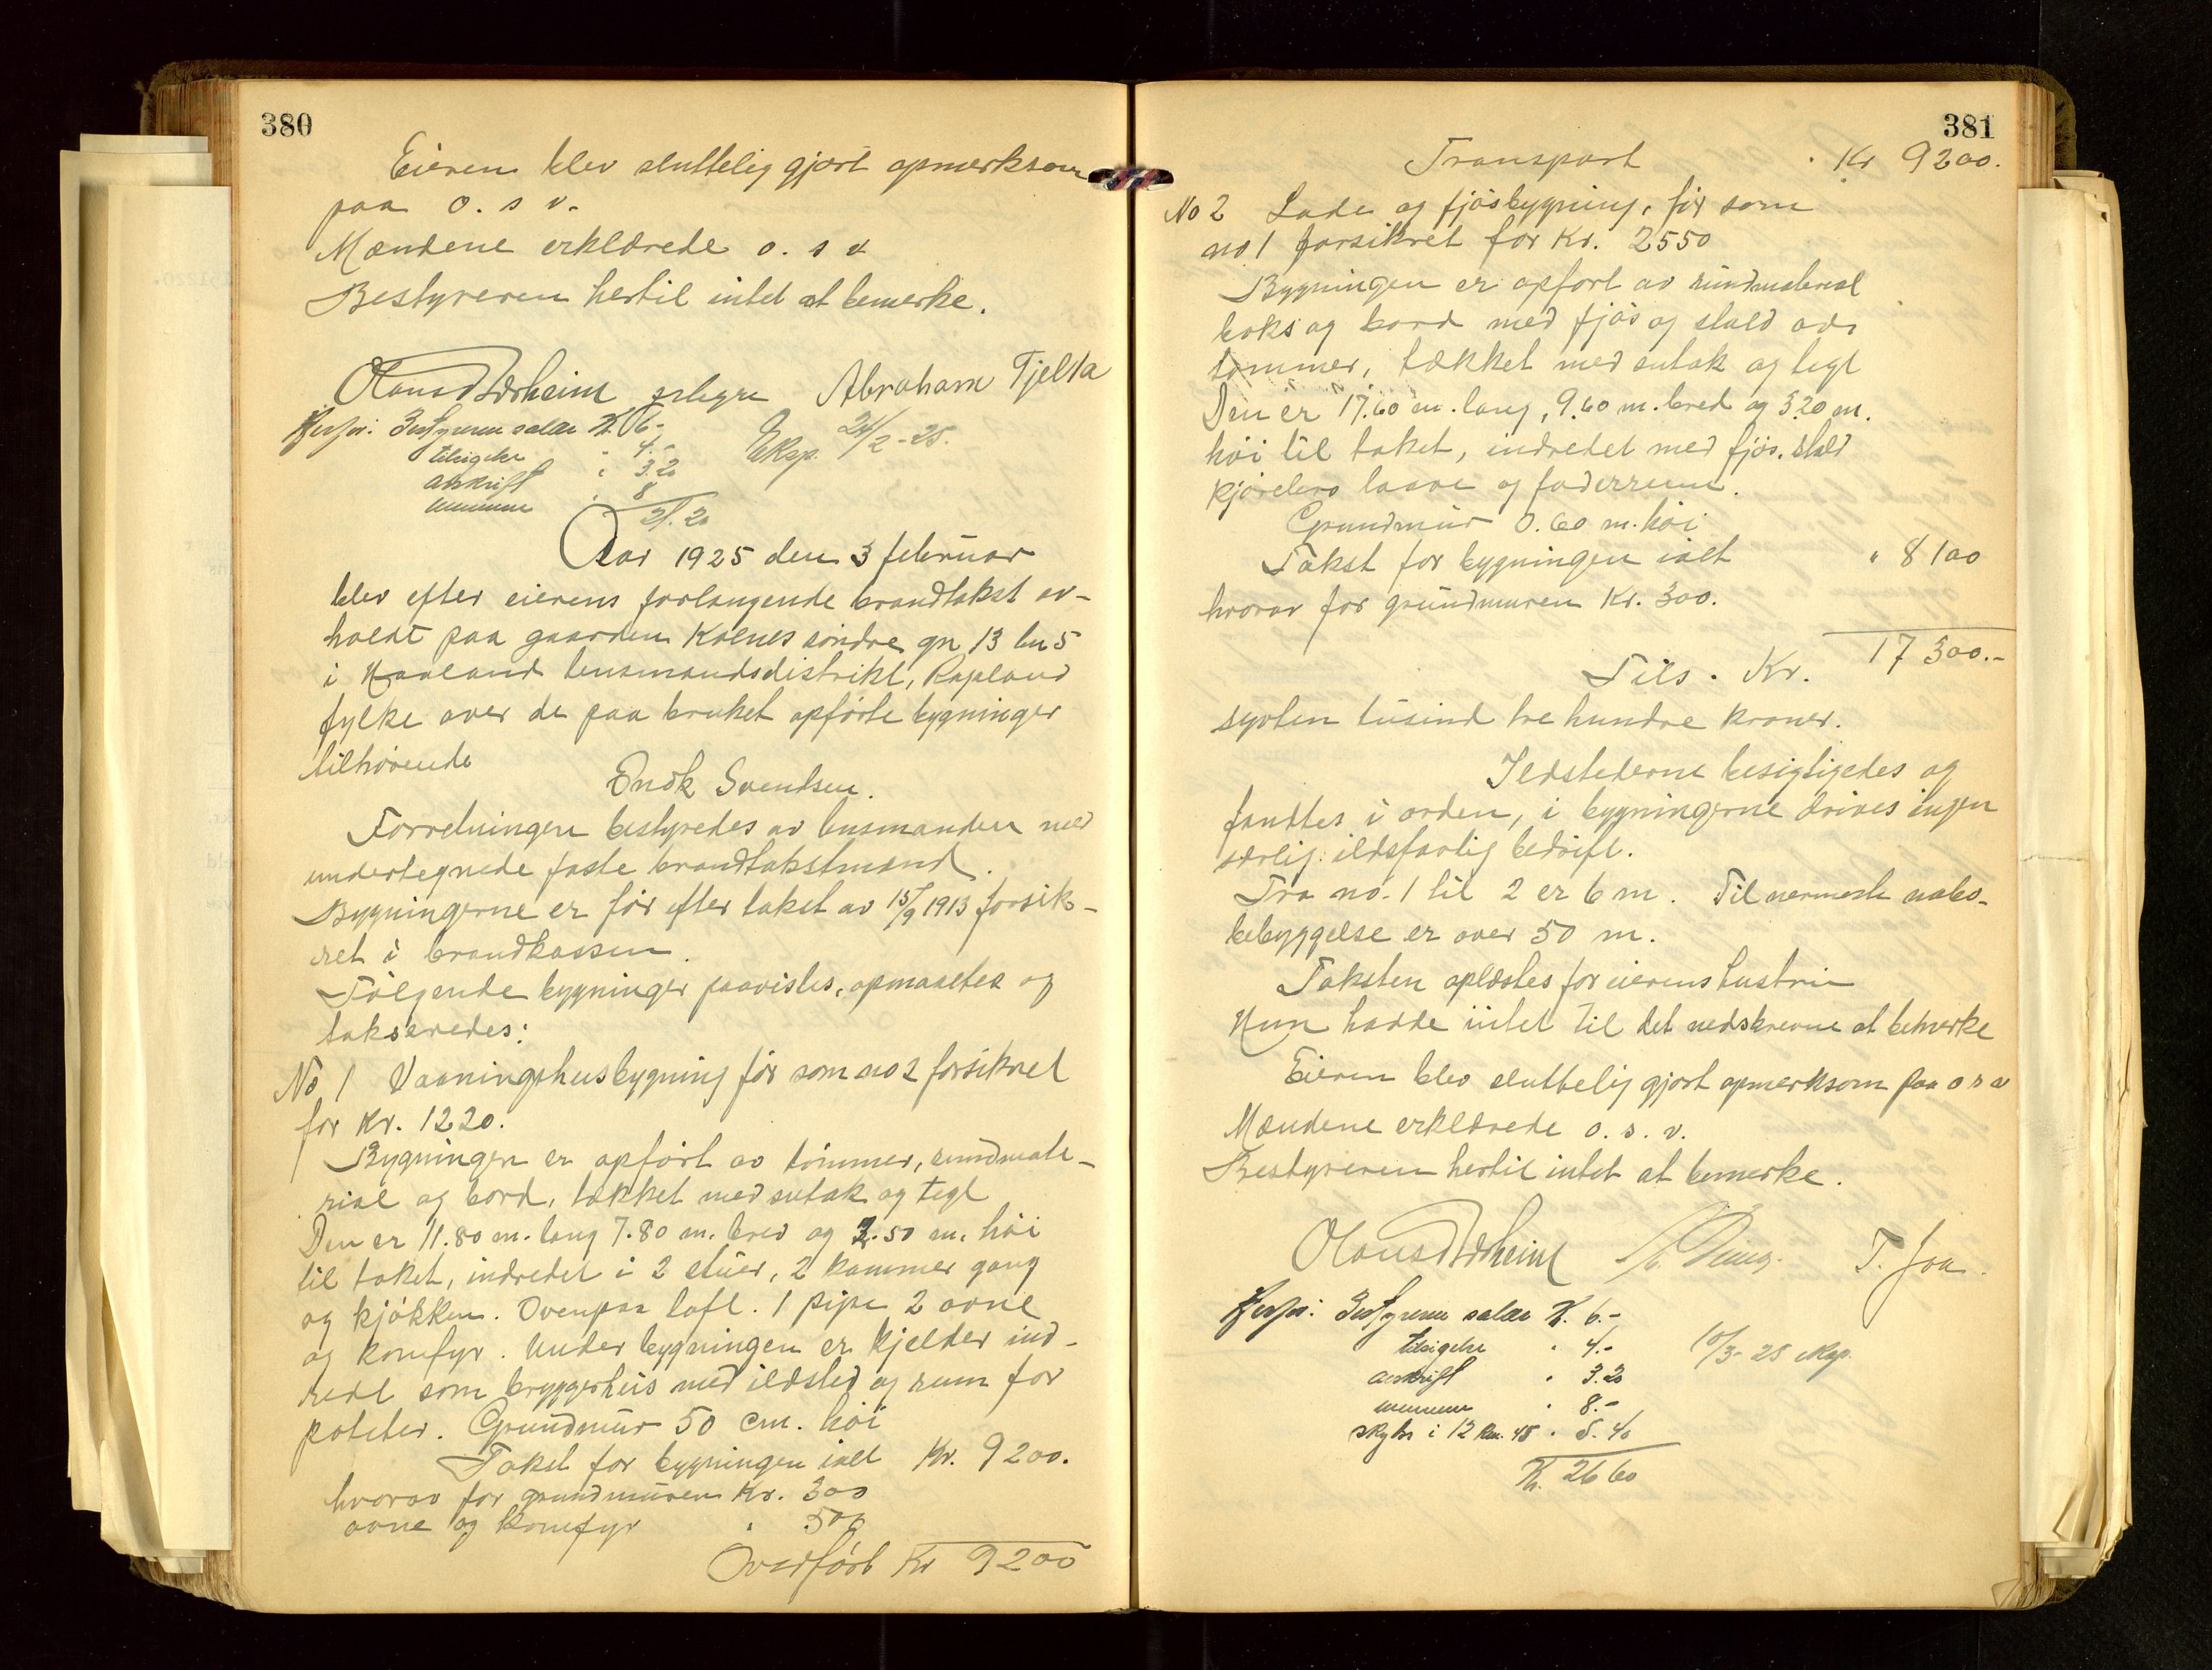 380
Eieren blev sluttelig gjort opmerksom
paa o. s v.
Mændene erklærede o. s v
Bestyreren hertil intet at bemerke.
Abraham Tjelta
Bestyrerens salær K. 6-
tilsigelse " 4.-
avskrift " 3.20
" 8
21.20
Eksp. 24/2-25.
Aar 1925 den 3 februar
blev efter eierens forlangende brandtakst av-
holdt paa gaarden Kolnes söndre gn 13 bn 5
i Haaland lensmandsdistrikt, Rogaland
fylke over de paa bruket opførte bygninger
tilhørende
Enok Svendsen.
Forretningen bestyredes av lensmanden med
undertegnede faste brandtakstmænd.
Bygningerne er før efter takst av 15/9 1913 forsik-
ret i brandkassen.
Følgende bygninger paavistes, opmaaltes og
takseredes:
No 1 Vaaningshusbygning før som no 2 forsikret
for Kr. 1220.
Bygningen er opført av tømmer, rundmate-
rial og bord, tækket med sutak og tegl
Den er 11.80 m. lang 7.80 m. bred og 3.50 m. høi
til taket, indredet i 2 stuer, 2 kammer gang
og kjøkken. Ovenpaa loft. 1 pipe 2 ovne
og komfyr. Under bygningen er kjelder ind-
redt som bryggerhus med ildsted og rum for
poteter. Grundmur 50 cm. høi
Takst for bygningen ialt Kr. 9200.
hvorav for grundmuren Kr. 300
ovne og komfyr " 500
Overført Kr 9200
381
Transport . Kr 9200.
No 2 Lade og fjøsbygning, før som
no 1 forsikret for Kr. 2550
Bygningen er opført av rundmaterial
boks og bord med fjøs og stald av
tømmer, tækket med sutak og tegl
Den er 17.60 m. lang, 9.60 m. bred og 3.20 m.
høi til taket, indredet med fjøs. stald
kjørebro laave og foderrum.
Grundmur 0.60 m. høi
Takst for bygningen ialt " 8100
hvorav for grundmuren Kr. 300.
Tils. Kr. 17300.-
sytten tusind tre hundre kroner.
Ildstederne besigtigedes og
fandtes i orden, i bygningerne drives ingen
særlig ildsfarlig bedrift.
Fra no. 1 til 2 er 6 m. Til nærmeste nabo-
bebyggelse er over 50 m.
Taksten oplæstes for eierens hustru
Hun hadde intet til det nedskrevne at bemerke
Eieren blev sluttelig gjort opmerksom paa o s v
Mændene erklærede o. s. v.
Bestyreren hertil intet at bemerke.
T. Joa.
Bestyrerens salær K. 6.-
tilsigelse " 4.-
avskrift " 3.20
" 8.-
skyds i 12 km. 45 " 5.40
K. 26 60
10/3-25 eksp.